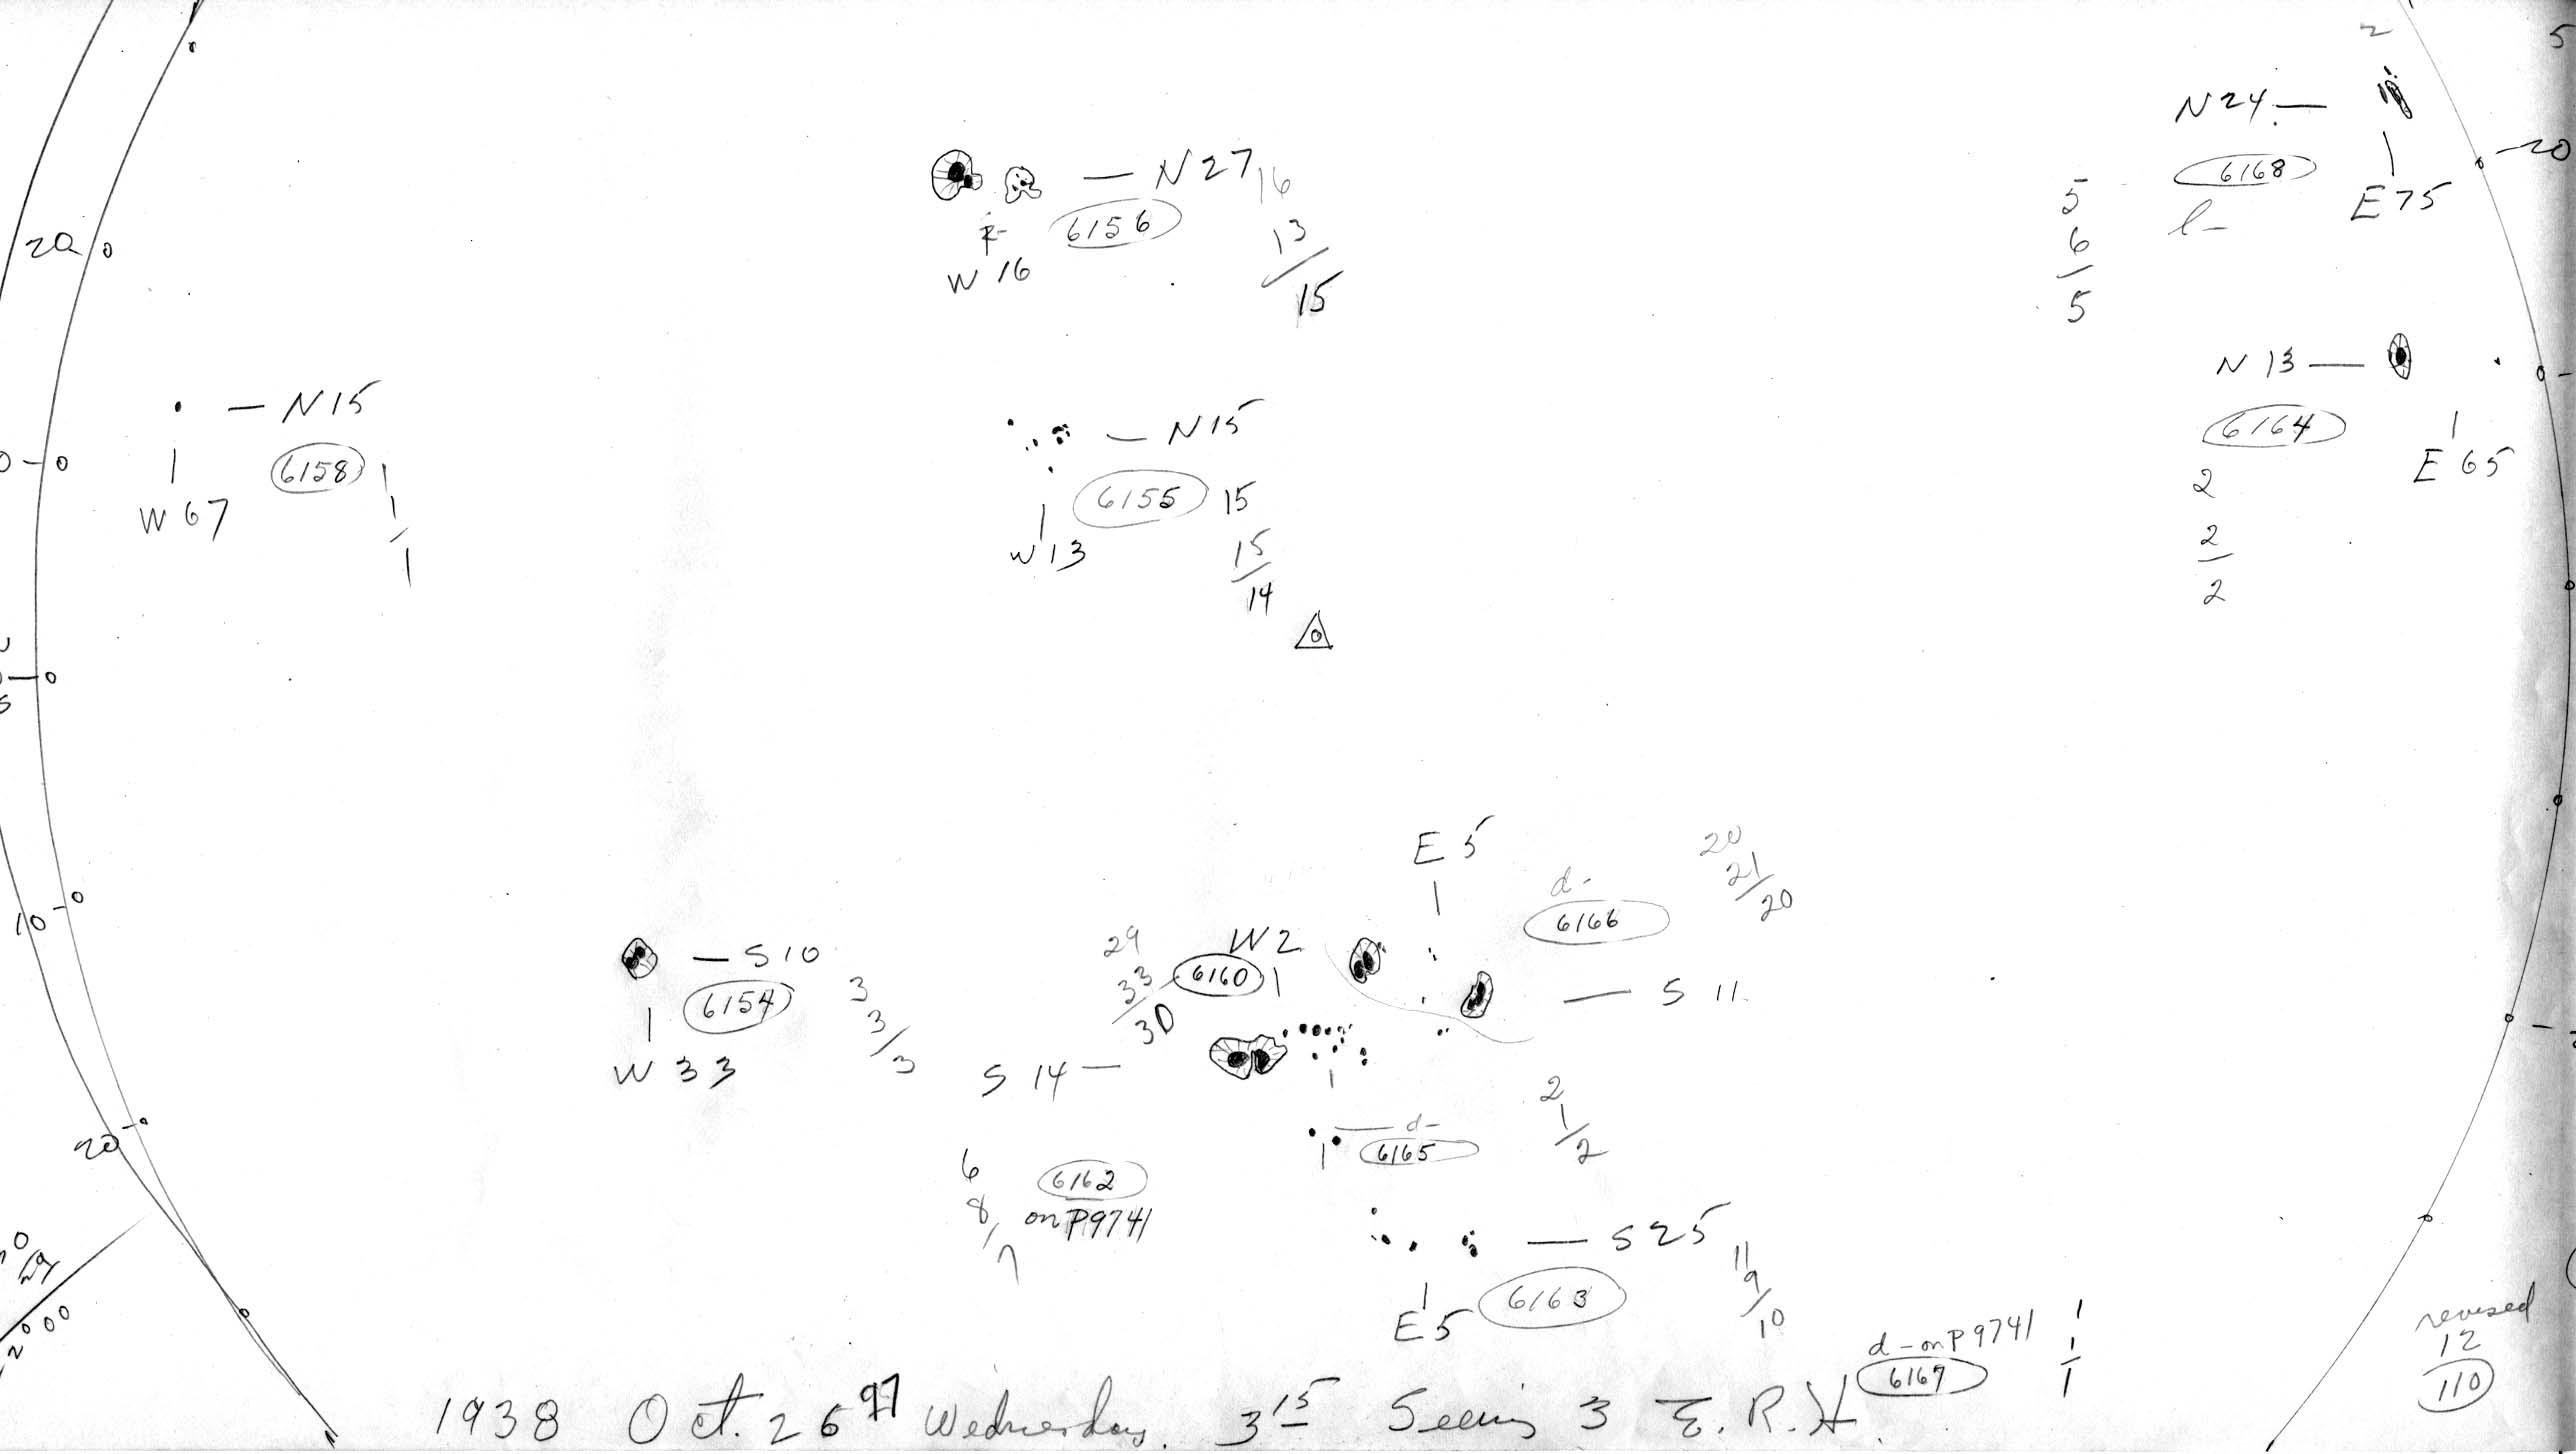 2
5
N24 —
6168
l-
E75
20
5
6
5
— N27
16
6156
W 16
13
15
20
N 13 —
6164
E 65
2
2
2
— N15
6158
W 67
1
1
1
— N15
6155
15
W 13
15
14
0
E 5
20
21
20
d-
6166
10
— S 10
6154
W 33
3
3
3
29
33
30
W2
6160
— S 11
S 14 —
20
d-
6165
2
1
2
6
8
7
6162
on P9741
— S 25
6163
E5
11
9
10
d- on P9741
6167
1
1
1
revised
12
110
1938 Oct. 26 97 Wednesday. 3 15 Seeing 3 E. R. H.